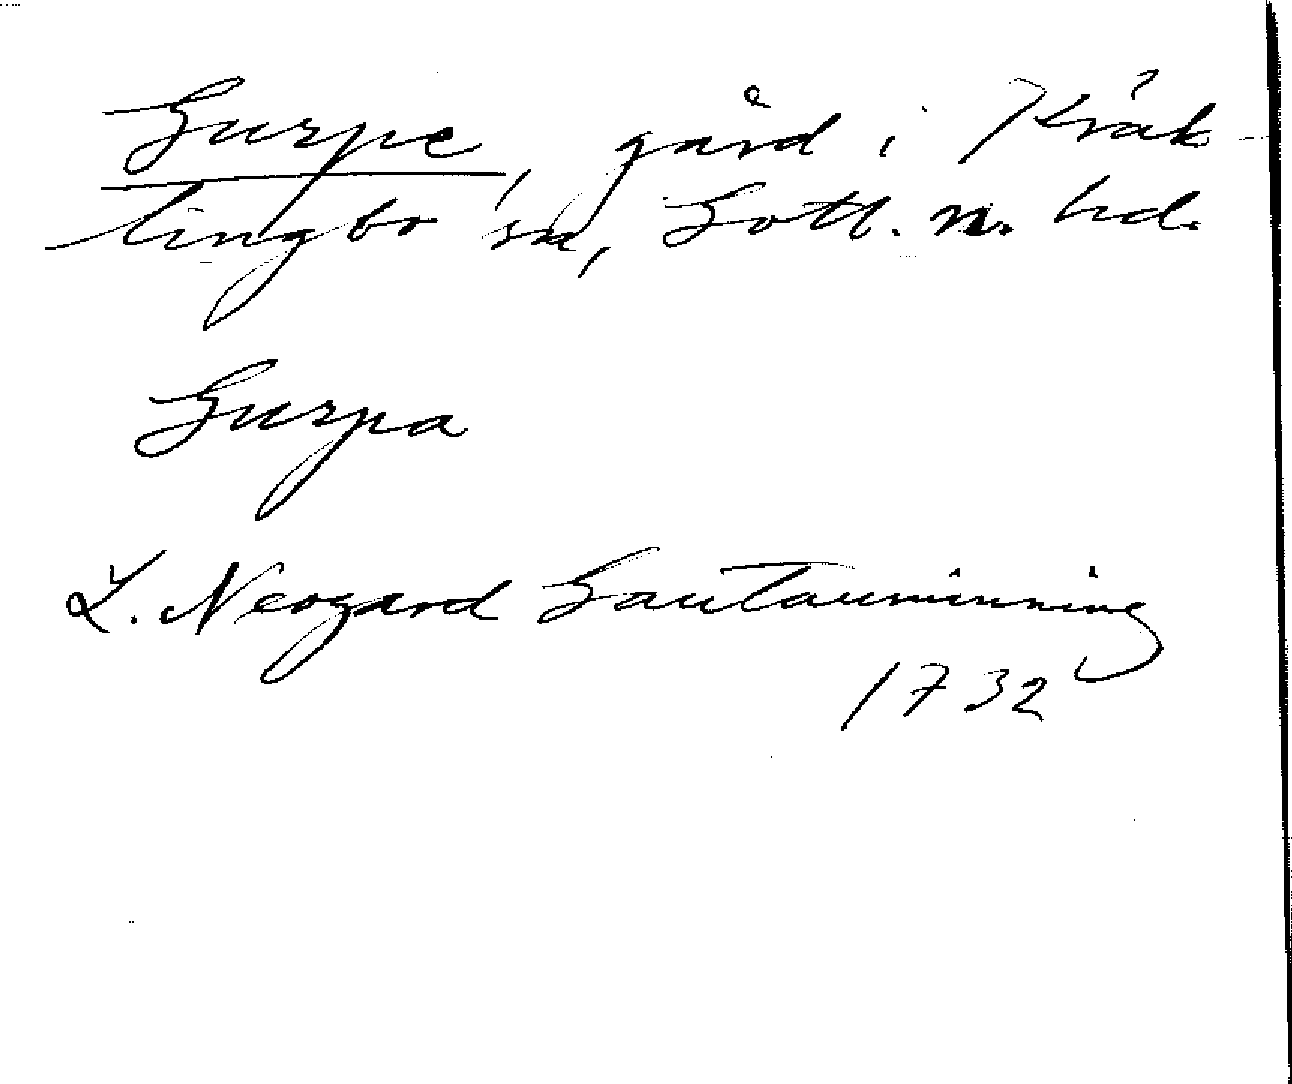 Gurpe, gård i Kräk-
lingbo sn, Gotl. n. hd.
Gurpa
L. Neogard Gautauminning
1732